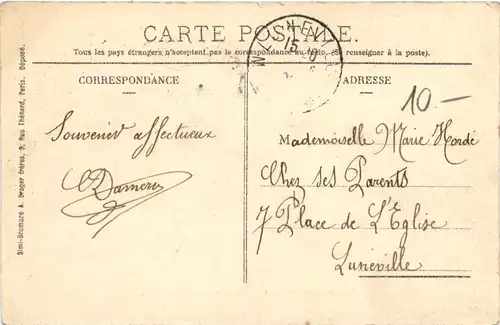 CARTE POSTALE.
Tous les pays étrangers n'acceptent pas la correspondance au recto. (Se renseigner à la poste)
CORRESPONDANCE
ADRESSE
10 —
Souvenir affectueux
Mademoiselle Marie Hordé
Chez ses Parents
7 Place de L'Eglise
Lunéville
Simi-Bromure A. Breger frères, 9, Rue Thénard, Paris. Déposé.